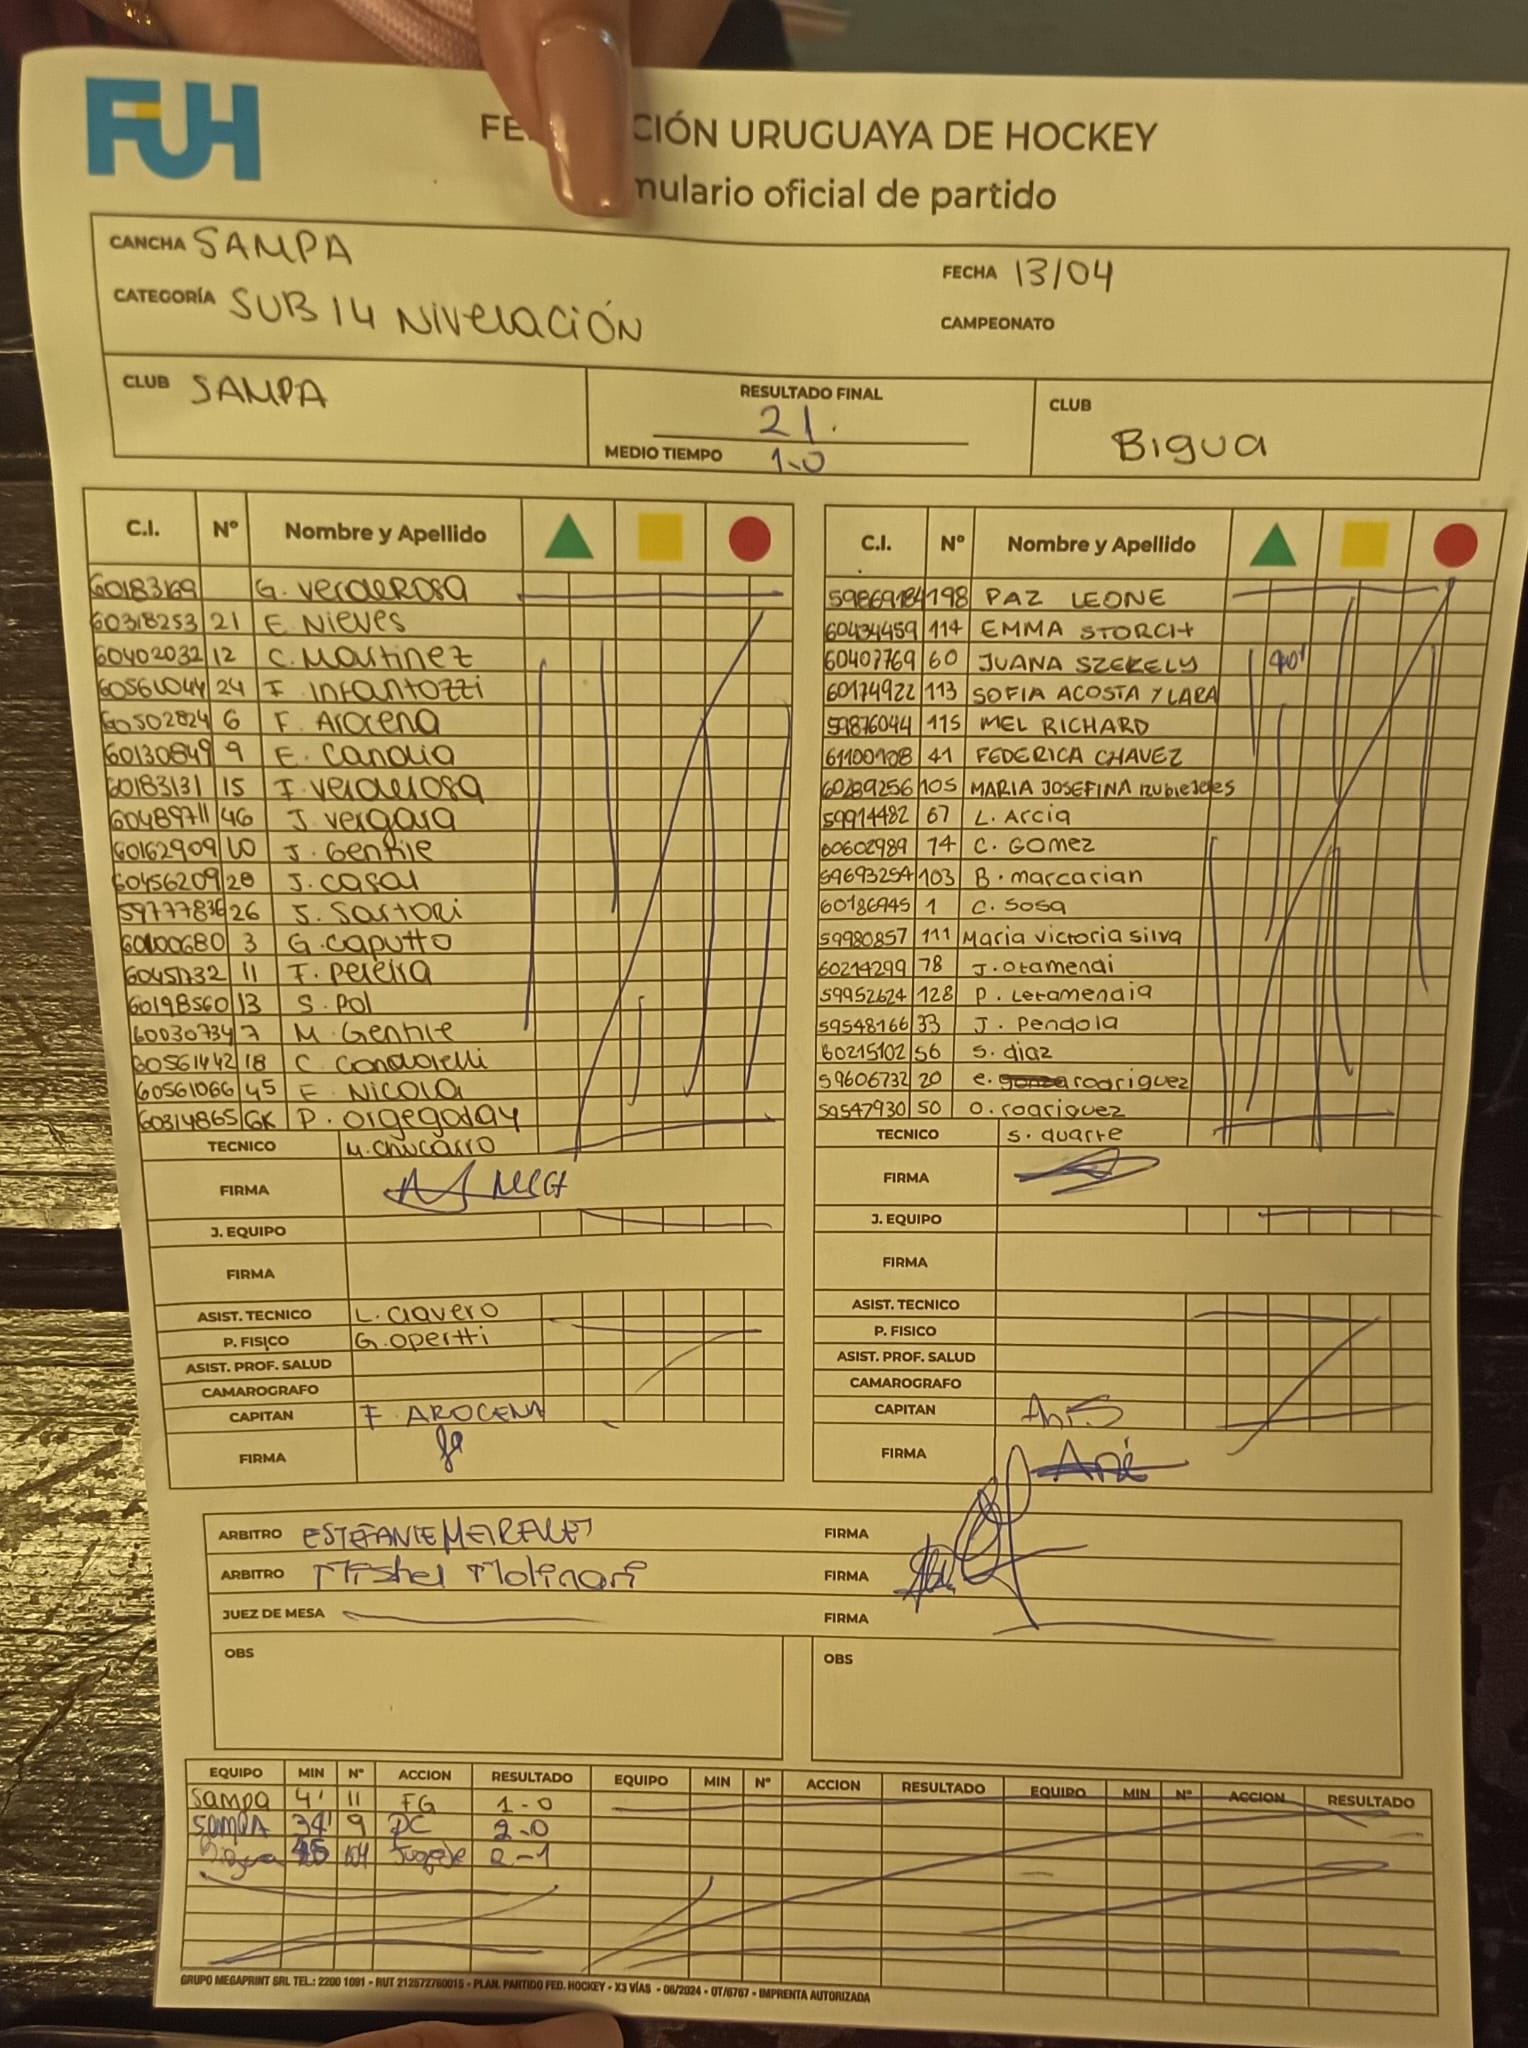 FUH
FE CIÓN URUGUAYA DE HOCKEY
mulario oficial de partido
CANCHA SAMPA
FECHA 13/04
CATEGORÍA SUB 14 NivelaciÓN
CAMPEONATO
CLUB SAMPA
RESULTADO FINAL
21.
MEDIO TIEMPO 1-0
CLUB
Bigua
C.I. Nº Nombre y Apellido
60183169 G. verderosa
60318253 21 E. Nieves
60402032 12 C. Martinez
60561044 24 F. Infantozzi
60502824 6 F. Arocena
60130849 9 E. Candia
60183131 15 F. verderosa
60489711 46 J. vergara
60162909 10 J. Gentile
60456209 28 J. casal
59777836 26 S. Sartori
3 G. caputto
11 F. pereira
60198560 13 S. Pol
60030734 7 M. Gentile
60561442 18 C.
60561066 45 E. Nicola
60314865 GK P. orgegoday
TECNICO M. Chucarro
FIRMA
J. EQUIPO
FIRMA
ASIST. TECNICO L. Clavero
P. FISICO G. opertti
ASIST. PROF. SALUD
CAMAROGRAFO
CAPITAN F. AROCENA
FIRMA
C.I. Nº Nombre y Apellido
59869184 198 PAZ LEONE
60434459 114 EMMA STORCH
60407769 60 JUANA SZEKELY 40'
60174922 113 SOFIA ACOSTA Y LARA
59876044 115 MEL RICHARD
61100108 41 FEDERICA CHAVEZ
60289256 105 MARIA JOSEFINA
59914482 67 L. Arcia
60602989 74 C. Gomez
59693254 103 B. marcarian
60186945 1 C. Sosa
59980857 111 Maria victoria silva
60214299 78 J. otamendi
59952624 128 P. Letamendia
59548166 33 J. Pendola
60215102 56 S. diaz
59606732 20 e. rodriguez
59547930 50 O. rodriguez
TECNICO S. duarte
FIRMA
J. EQUIPO
FIRMA
ASIST. TECNICO
P. FISICO
ASIST. PROF. SALUD
CAMAROGRAFO
CAPITAN
FIRMA
ARBITRO FIRMA
ARBITRO Mishel Molinari FIRMA
JUEZ DE MESA FIRMA
OBS OBS
EQUIPO MIN Nº ACCION RESULTADO EQUIPO MIN Nº ACCION RESULTADO EQUIPO MIN Nº ACCION RESULTADO
Sampa 4' 11 FG 1-0
SAMPA 34' 9 PC 2-0
2-1
GRUPO MEGAPRINT SRL TEL.: 2200 1091 - RUT 212572760015 - PLAN. PARTIDO FED. HOCKEY - X3 VÍAS - 06/2024 - OT/6767 - IMPRENTA AUTORIZADA